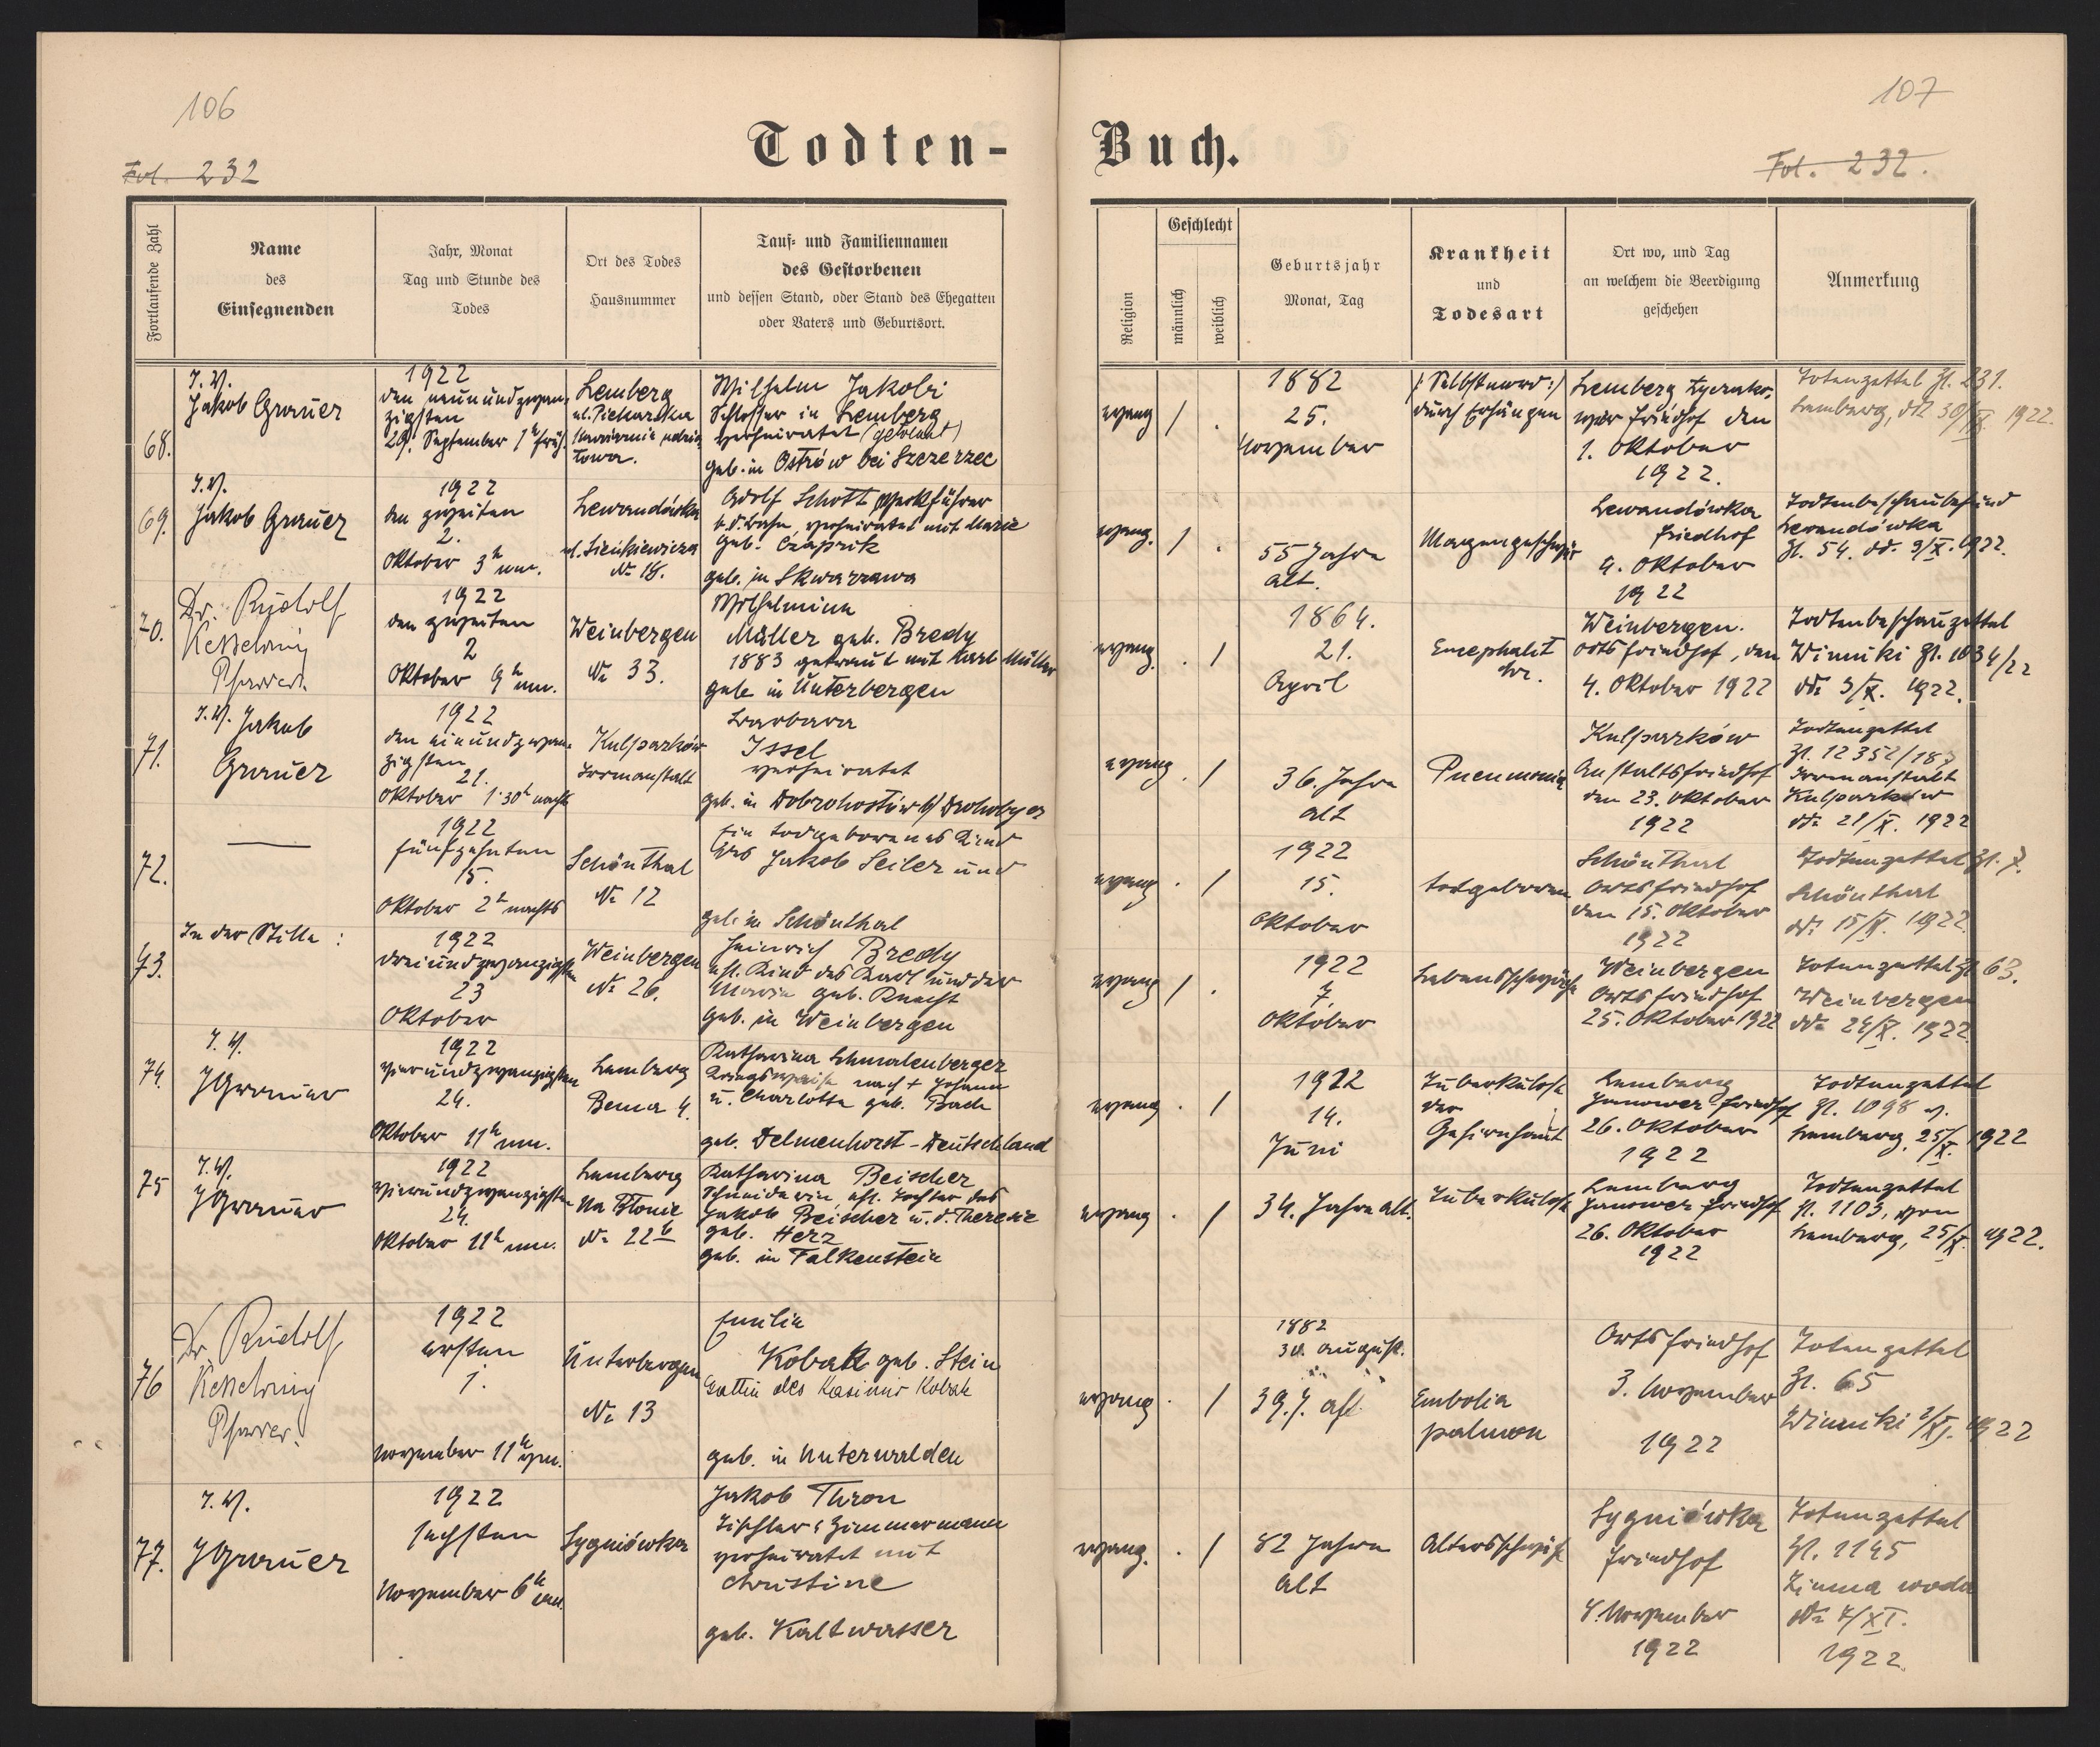 106
107
Todten-
Buch.
Fol. 232
Fol. 232.
Fortlaufende Zahl
Name
des
Einsegnenden
Jahr, Monat
Tag und Stunde des
Todes
Ort des Todes
Hausnummer
Tauf- und Familiennamen
des Gestorbenen
und dessen Stand, oder Stand des Ehegatten
oder Vaters und Geburtsort.
Religion
Geschlecht
männlich
weiblich
Geburtsjahr
Monat, Tag
Krankheit
und
Todesart
Ort wo, und Tag
an welchem die Beerdigung
geschehen
Anmerkung
68.
I. V.
Jakob Grauer
1922
den neunundzwan-
zigsten
29. September 1h früh.
Lemberg
ul. Piekarska
towa.
Wilhelm Jakobi
Schlosser in Lemberg
verheiratet
geb. in Ostrów bei Szczerzec
evang
/
.
1882
25.
November
/: Selbstmord :/
durch Erhängen
Lemberg
Friedhof den
1. Oktober
1922.
Totenzettel Zl. 231.
Lemberg, dto 30/IX. 1922.
69.
I. V.
Jakob Grauer
1922
den zweiten
2.
Oktober 3h nm.
Lewandówka
ul. Sienkiewicza
No 18.
Adolf Schott Werkführer
verheiratet mit Marie
geb. Czaprik
geb. in Skwarzawa
evang.
/
.
55 Jahre
alt.
Magengeschwür
Lewandówka
Friedhof
4. Oktober
1922
Todtenbeschaubefund
Lewandówka
Zl. 54. dd. 3/X. 1922.
70.
Dr. Rudolf
Kesselring
Pfarrer.
1922
den zweiten
2
Oktober 9h nm.
Weinbergen
No 33.
Wilhelmine
Müller geb. Bredy
1883 getraut mit Karl Müller
geb. in Unterbergen
evang.
.
/
1864.
21.
April
Weinbergen.
Ortsfriedhof, den
4. Oktober 1922
Todtenbeschauzettel
Winniki Zl. 1034/22
dto 3/X. 1922.
71.
I. V. Jakob
Grauer
1922
den einundzwan-
zigsten
21.
Oktober 1·30h nachts
Kulparków
Irrenanstalt
Barbara
Issel
verheiratet
geb. in Dobrohostów b/ Drohobycz
evang
.
/
36. Jahre
alt
Pneumonia
Kulparków
Anstaltsfriedhof
den 23. Oktober
1922
Todtenzettel
Irrenanstalt
Kulparków
dto 21/X. 1922
72.
1922
fünfzehnten
15.
Oktober 2h nachts
Schönthal
No 12
Ein todgeborenes Kind
des Jakob Seiler und
geb. in Schönthal
evang
.
/
1922
15.
Oktober
todgeboren
Schönthal
Ortsfriedhof
den 15. Oktober
1922
Todtenzettel Zl. 7.
Schönthal
dto 15/X. 1922.
73.
In der Stille :
1922
dreiundzwanzigsten
23
Oktober
Weinbergen
No 26.
Heinrich Bredy
ehl. Kind des Karl und der
Maria geb. Knecht
geb. in Weinbergen
evang
/
.
1922
7.
Oktober
Lebensschwäche
Weinbergen
Ortsfriedhof
25. Oktober 1922
Totenzettel Zl 63.
Weinbergen
dto 24/X. 1922.
74.
I. V.
JGrauer
1922
vierundzwanzigsten
24.
Oktober 11h nm.
Lemberg
Bema 4.
Katharina Schmalenberger
Kriegswaise nach + Johann
u. Charlotte geb. Bach
geb. Delmenhorst - Deutschland
evang
.
/
1922
14.
Juni
Tuberkulose
der
Gehirnhaut
Lemberg
Janower-Friedhof
26. Oktober
1922
Todtenzettel
Zl. 1098 v.
Lemberg, 25/X. 1922
75
I. V.
JGrauer
1922
vierundzwanzigsten
24.
Oktober 11h nm.
Lemberg
Na Błonie
No 22b
Katharina Beischer
Schneiderin ehl. Tochter des
Jakob Beischer u. d. Theresie
geb. Herz
geb. in Falkenstein
evang
.
/
34. Jahre alt.
Tuberkulose
Lemberg
Janower Friedhof
26. Oktober
1922
Todtenzettel
Zl. 1103, von
Lemberg, 25/X. 1922.
76
Dr. Rudolf
Kesselring
Pfarrer.
1922
ersten
1.
November 11h vm.
Unterbergen
No 13
Emilie
Kobak geb. Stein
Gattin des Kasimir Kobak
geb. in Unterwalden
evang
.
/
1882
30. August.
39. J. alt
Embolia
pulmon
Ortsfriedhof
3. November
1922
Totenzettel
Zl. 65
Winniki 2/XI. 1922
77.
I. V.
JGrauer
1922
sechsten
November 6h
Sygniówka
Jakob Thron
Tischler & Zimmermann
verheiratet mit
Christine
geb. Kaltwasser
evang.
.
/
82 Jahre
alt
Altersschwäche
Sygniówka
Friedhof
8. November
1922
Totenzettel
Zl. 1145
Zimna woda
dto 7/XI.
1922.